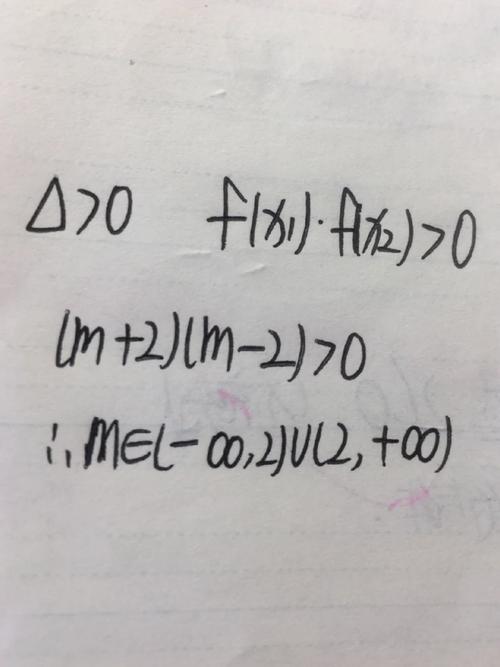 Δ>0 f(x₁)·f(x₂)>0
(m+2)(m-2)>0
∴m∈(-∞,2)∪(2,+∞)